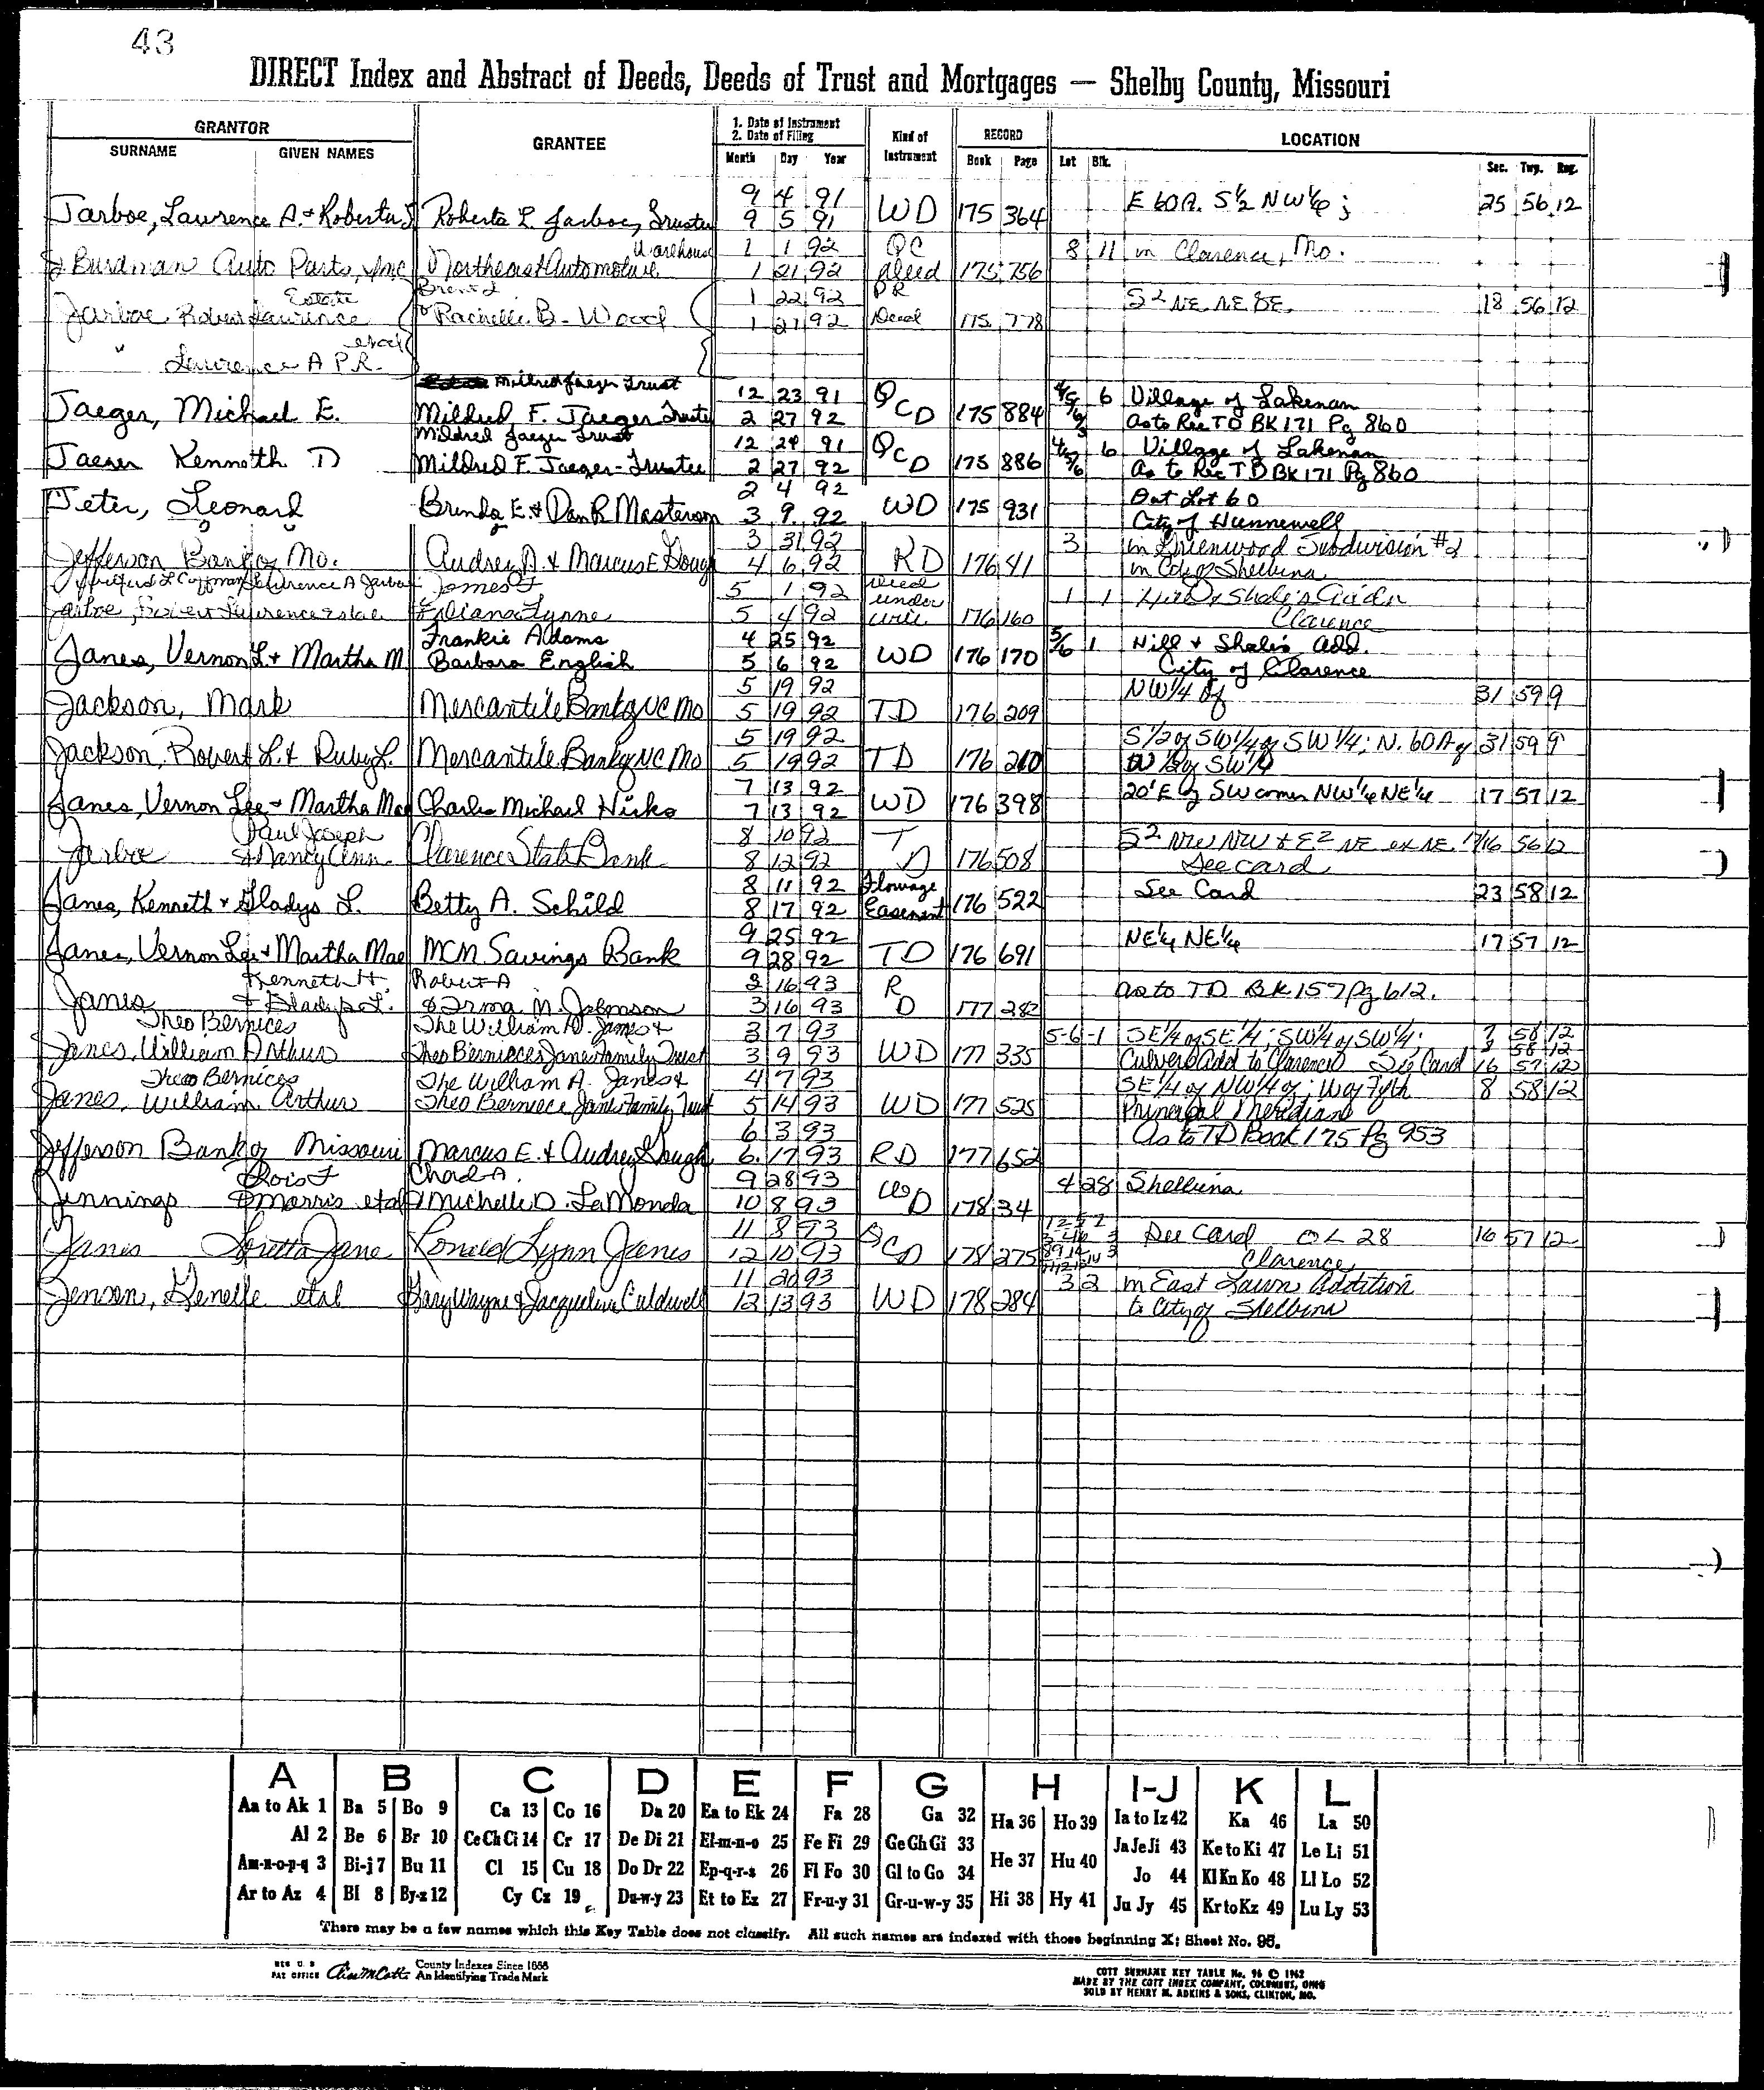 43
DIRECT Index and Abstract of Deeds, Deeds of Trust and Mortgages — Shelby County, Missouri
GRANTOR
SURNAME GIVEN NAMES
GRANTEE
1. Date of Instrument
2. Date of Filing
Month Day Year
Kind of Instrument
RECORD
Book Page
LOCATION
Lot Blk. Sec. Twp. Rng.
9 4 91 E 60A. S½ NW¼; 25 56 12
Jarboe, Lawrence A. & Roberta L Roberta L. Jarboe, Trustee 9 5 91 WD 175 364
Warehouse 1 1 92 QC 8 11 in Clarence, Mo.
Burdman Auto Parts, Inc Northeast Automotive 1 21 92 Deed 175 756
Estate Brent L 1 22 92 PR S² NE NE SE 18 56 12
Jarboe Robert Lawrence & Rachelle B. Wood 1 27 92 Deed 175 778
etal
" Lawrence A P.R.
Mildred Jaeger Trust 12 23 91 6 Village of Lakenan
Jaeger, Michael E. Mildred F. Jaeger Trustee 2 27 92 QCD 175 884 As to Rec TD BK 171 Pg 860
Mildred Jaeger Trust 12 24 91 6 Village of Lakenan
Jaeger Kenneth D Mildred F. Jaeger - Trustee 2 27 92 QCD 175 886 As to Rec TD BK 171 Pg 860
2 4 92 Out Lot 60
Jeter, Leonard Brenda E. & Dan R Masterson 3 9 92 WD 175 931 City of Hunnewell
3 31 92 3 in Greenwood Subdivision #2
Jefferson Bank of Mo. Audrey A. & Marcus E Gough 4 6 92 RD 176 41 in City of Shelbina
Lawrence A Jarboe James F 5 1 92 Deed under 1 1 Hill & Shale's Add'n
Jarboe, Robert Lawrence estate Liliana Lynne 5 4 92 will 176 160 Clarence
Frankie Adams 4 25 92 5/6 1 Hill & Shale's Add.
Janes, Vernon L. & Martha M Barbara English 5 6 92 WD 176 170 City of Clarence
5 19 92 NW¼ of 31 59 9
Jackson, Mark Mercantile Bank of NC Mo 5 19 92 TD 176 209
5 19 92 S 1/2 of SW¼ of SW¼; N. 60 A of 31 59 9
Jackson, Robert L. & Ruby L. Mercantile Bank of NC Mo 5 19 92 TD 176 210 W ½ of SW¼
7 13 92 20' E of SW corner NW¼ NE¼ 17 57 12
Janes, Vernon Lee & Martha Mae Charles Michael Hicks 7 13 92 WD 176 398
Paul Joseph 8 10 92 S² NW NW & E² NE ex NE 17/16 56 12
Jarboe & Nancy Ann Clarence State Bank 8 12 92 TD 176 508 See card
8 11 92 Flowage See Card 23 58 12
Janes, Kenneth & Gladys L. Betty A. Schild 8 17 92 Easement 176 522
9 25 92 NE¼ NE¼ 17 57 12
Janes, Vernon Lee & Martha Mae MCM Savings Bank 9 28 92 TD 176 691
Kenneth H. Robert A 3 16 93 As to TD BK 157 Pg 612.
Janes & Gladys L. & Irma M. Johnson 3 16 93 RD 177 282
Theo Bernices The William A. Janes & 3 7 93 5-6-1 SE¼ of SE¼; SW¼ of SW¼; 58 12
Janes, William Arthur Theo Bernieces Janes Family Trust 3 9 93 WD 177 335 Culvers Add to Clarence See Card 16 57 12
Theo Bernices The William A. Janes & 4 7 93 SE¼ of NW¼ of; W of 7yth 8 58 12
Janes, William Arthur Theo Berniece Janes Family Trust 5 14 93 WD 177 525 Principal Meridian
6 3 93 As to TD Book 175 Pg 953
Jefferson Bank of Missouri Marcus E. & Audrey Gough 6 17 93 RD 177 652
Lois F Chad A. 9 28 93 4 28 Shelbina
Jennings & Morris etal & Michelle D. LaMonda 10 8 93 WD 178 34
11 8 93 See Card OL 28 16 57 12
Janes Loretta Jane Ronald Lynn Janes 12 10 93 QCD 178 275 Clarence
11 20 93 3 2 in East Lawn Addition
Jensen, Genelle etal Gary Wayne & Jacqueline Caldwell 12 13 93 WD 178 284 to City of Shelbina
A B C D E F G H I-J K L
Aa to Ak 1 Ba 5 Bo 9 Ca 13 Co 16 Da 20 Ea to Ek 24 Fa 28 Ga 32 Ha 36 Ho 39 Ia to Iz 42 Ka 46 La 50
Al 2 Be 6 Br 10 Ce Ch Ci 14 Cr 17 De Di 21 El-m-n-o 25 Fe Fi 29 Ge Gh Gi 33 He 37 Hu 40 Ja Je Ji 43 Ke to Ki 47 Le Li 51
Am-n-o-p-q 3 Bi-j 7 Bu 11 Cl 15 Cu 18 Do Dr 22 Ep-q-r-s 26 Fl Fo 30 Gl to Go 34 Jo 44 Kl Kn Ko 48 Ll Lo 52
Ar to Az 4 Bl 8 By-z 12 Cy Cz 19 Du-w-y 23 Et to Ez 27 Fr-u-y 31 Gr-u-w-y 35 Hi 38 Hy 41 Ju Jy 45 Kr to Kz 49 Lu Ly 53
There may be a few names which this Key Table does not classify. All such names are indexed with those beginning X; Sheet No. 95.
REG U.S PAT OFFICE County Indexes Since 1888
An Identifying Trade Mark
COTT SURNAME KEY TABLE No. 96 © 1962
MADE BY THE COTT INDEX COMPANY, COLUMBUS, OHIO
SOLD BY HENRY M. ADKINS & SONS, CLINTON, MO.